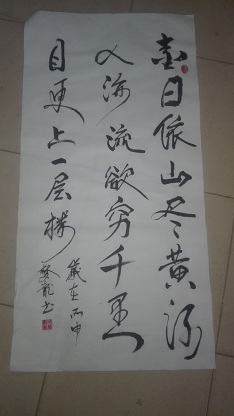 日依山尽黄河
入海流欲穷千里
目更上一层楼
歲在丙申
龍书